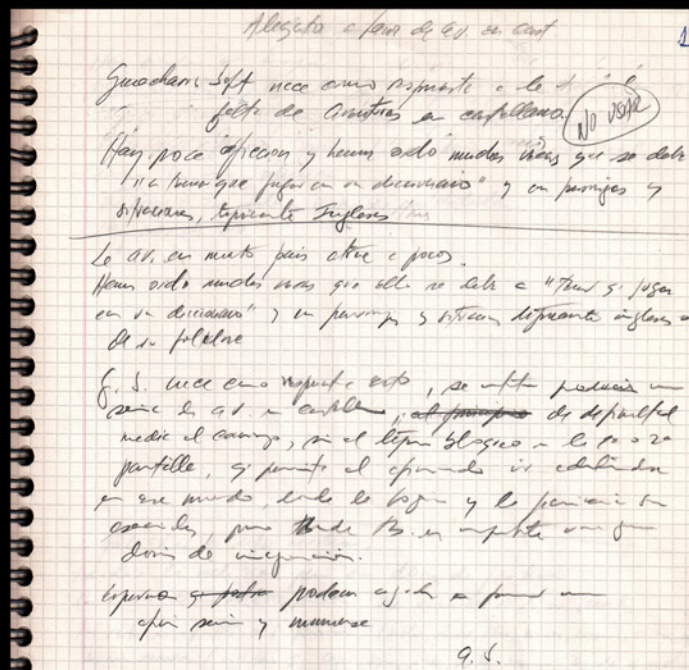 Alegato a favor de av. en cast
1
Guadalu Soft nace como respuesta a la
falta de aventuras en castellano.
NO USAR
Hay poca aficcion y hemos oido muchas veces que se debe
"a tener que jugar con un diccionario" y en personajes y
situaciones, tipicamente Inglesas
La av. en nuestro pais atrae a pocos.
Hemos oido muchas veces que ello se debe a "tener q jugar
con un diccionario" y en personajes y situacions tipicamente inglesas o
de su folklore
G. S. nace como respuesta a esto, se producir una
serie de av. en castellano, de dificultad
media el comienzo, sin el tipico bloqueo en la 10 o 20
pantalla, q permita al aficionado ir
en ese mundo, donde la logica y la paciencia son
esenciales, pero donde tb. es importante una gran
dosis de imaginación.
Esperamos podamos ayudar a formar una
aficion seria y numerosa
G. S.